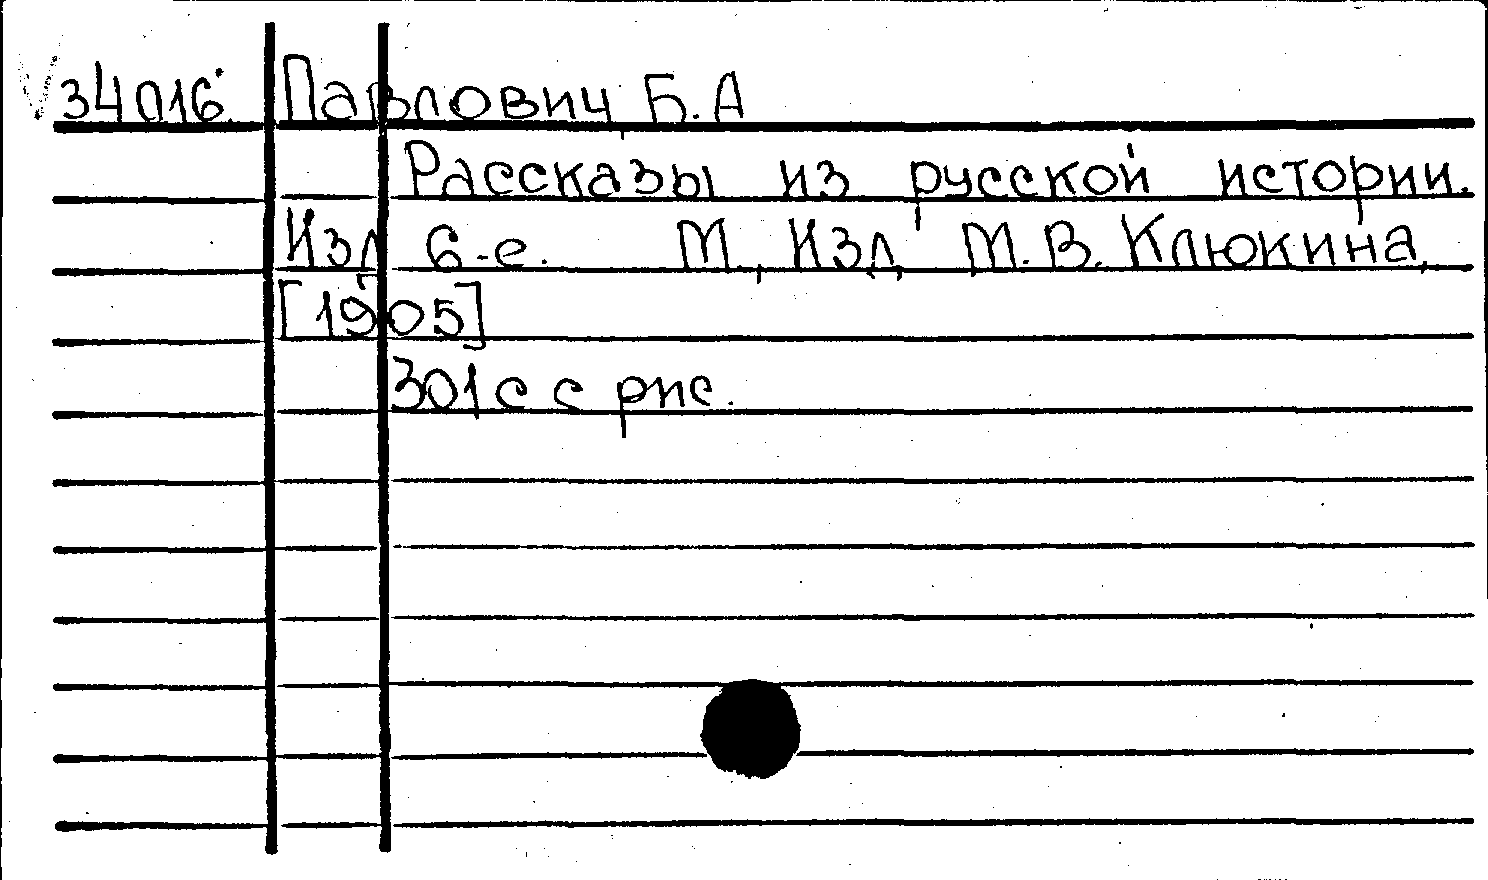 34016. Павлович, Б. А
Рассказы из русской истории.
Изд 6-е. М., Изд. М.В. Клюкина,
[1905]
301 с с рис.